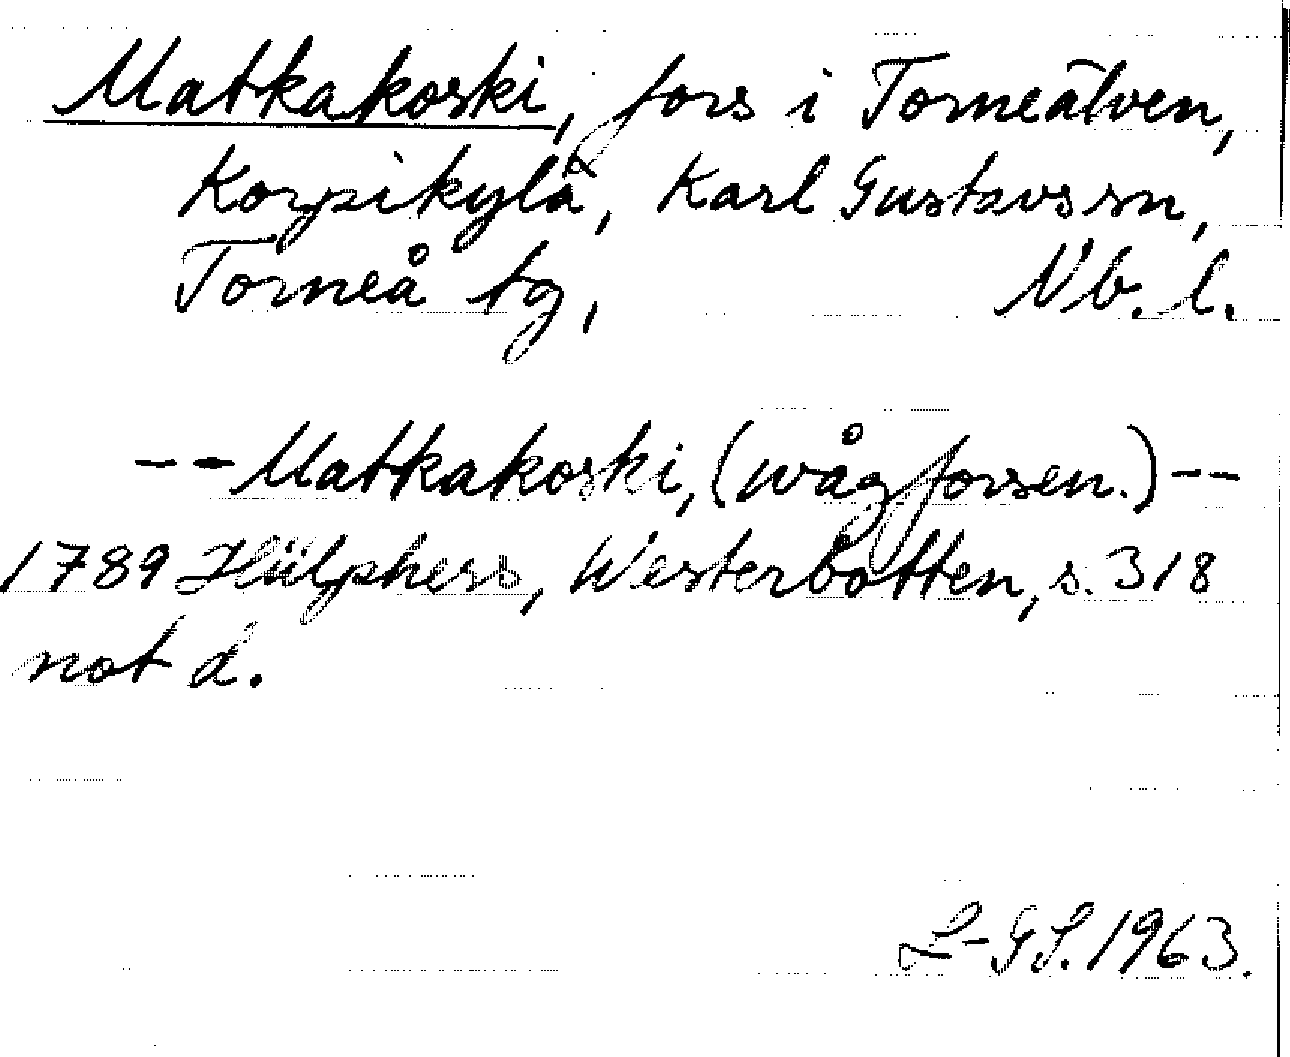 Matkakoski, fors i Torneälven,
Korpikylä, Karl Gustavs sn,
Torneå tg, Nb. l.
-- Matkakoski, (wågforsen.) --
1789 Hülphers, Westerbotten, s. 318
not d.
L-GL. 1963.